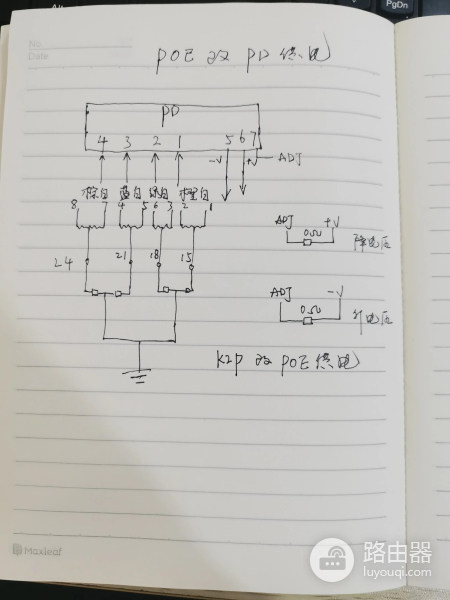 No
Date
POE 改 PD 供电
PD
4 3 2 1 5 6 7
-V +V ADJ
棕白 蓝白 绿白 橙白
8 7 4 5 6 3 2 1
24 21 18 15
ADJ +V
0.5Ω 降电压
ADJ -V
0.5Ω 升电压
K2P 改 POE 供电
Maxleaf
路由器
luyouqi.com
PgDn